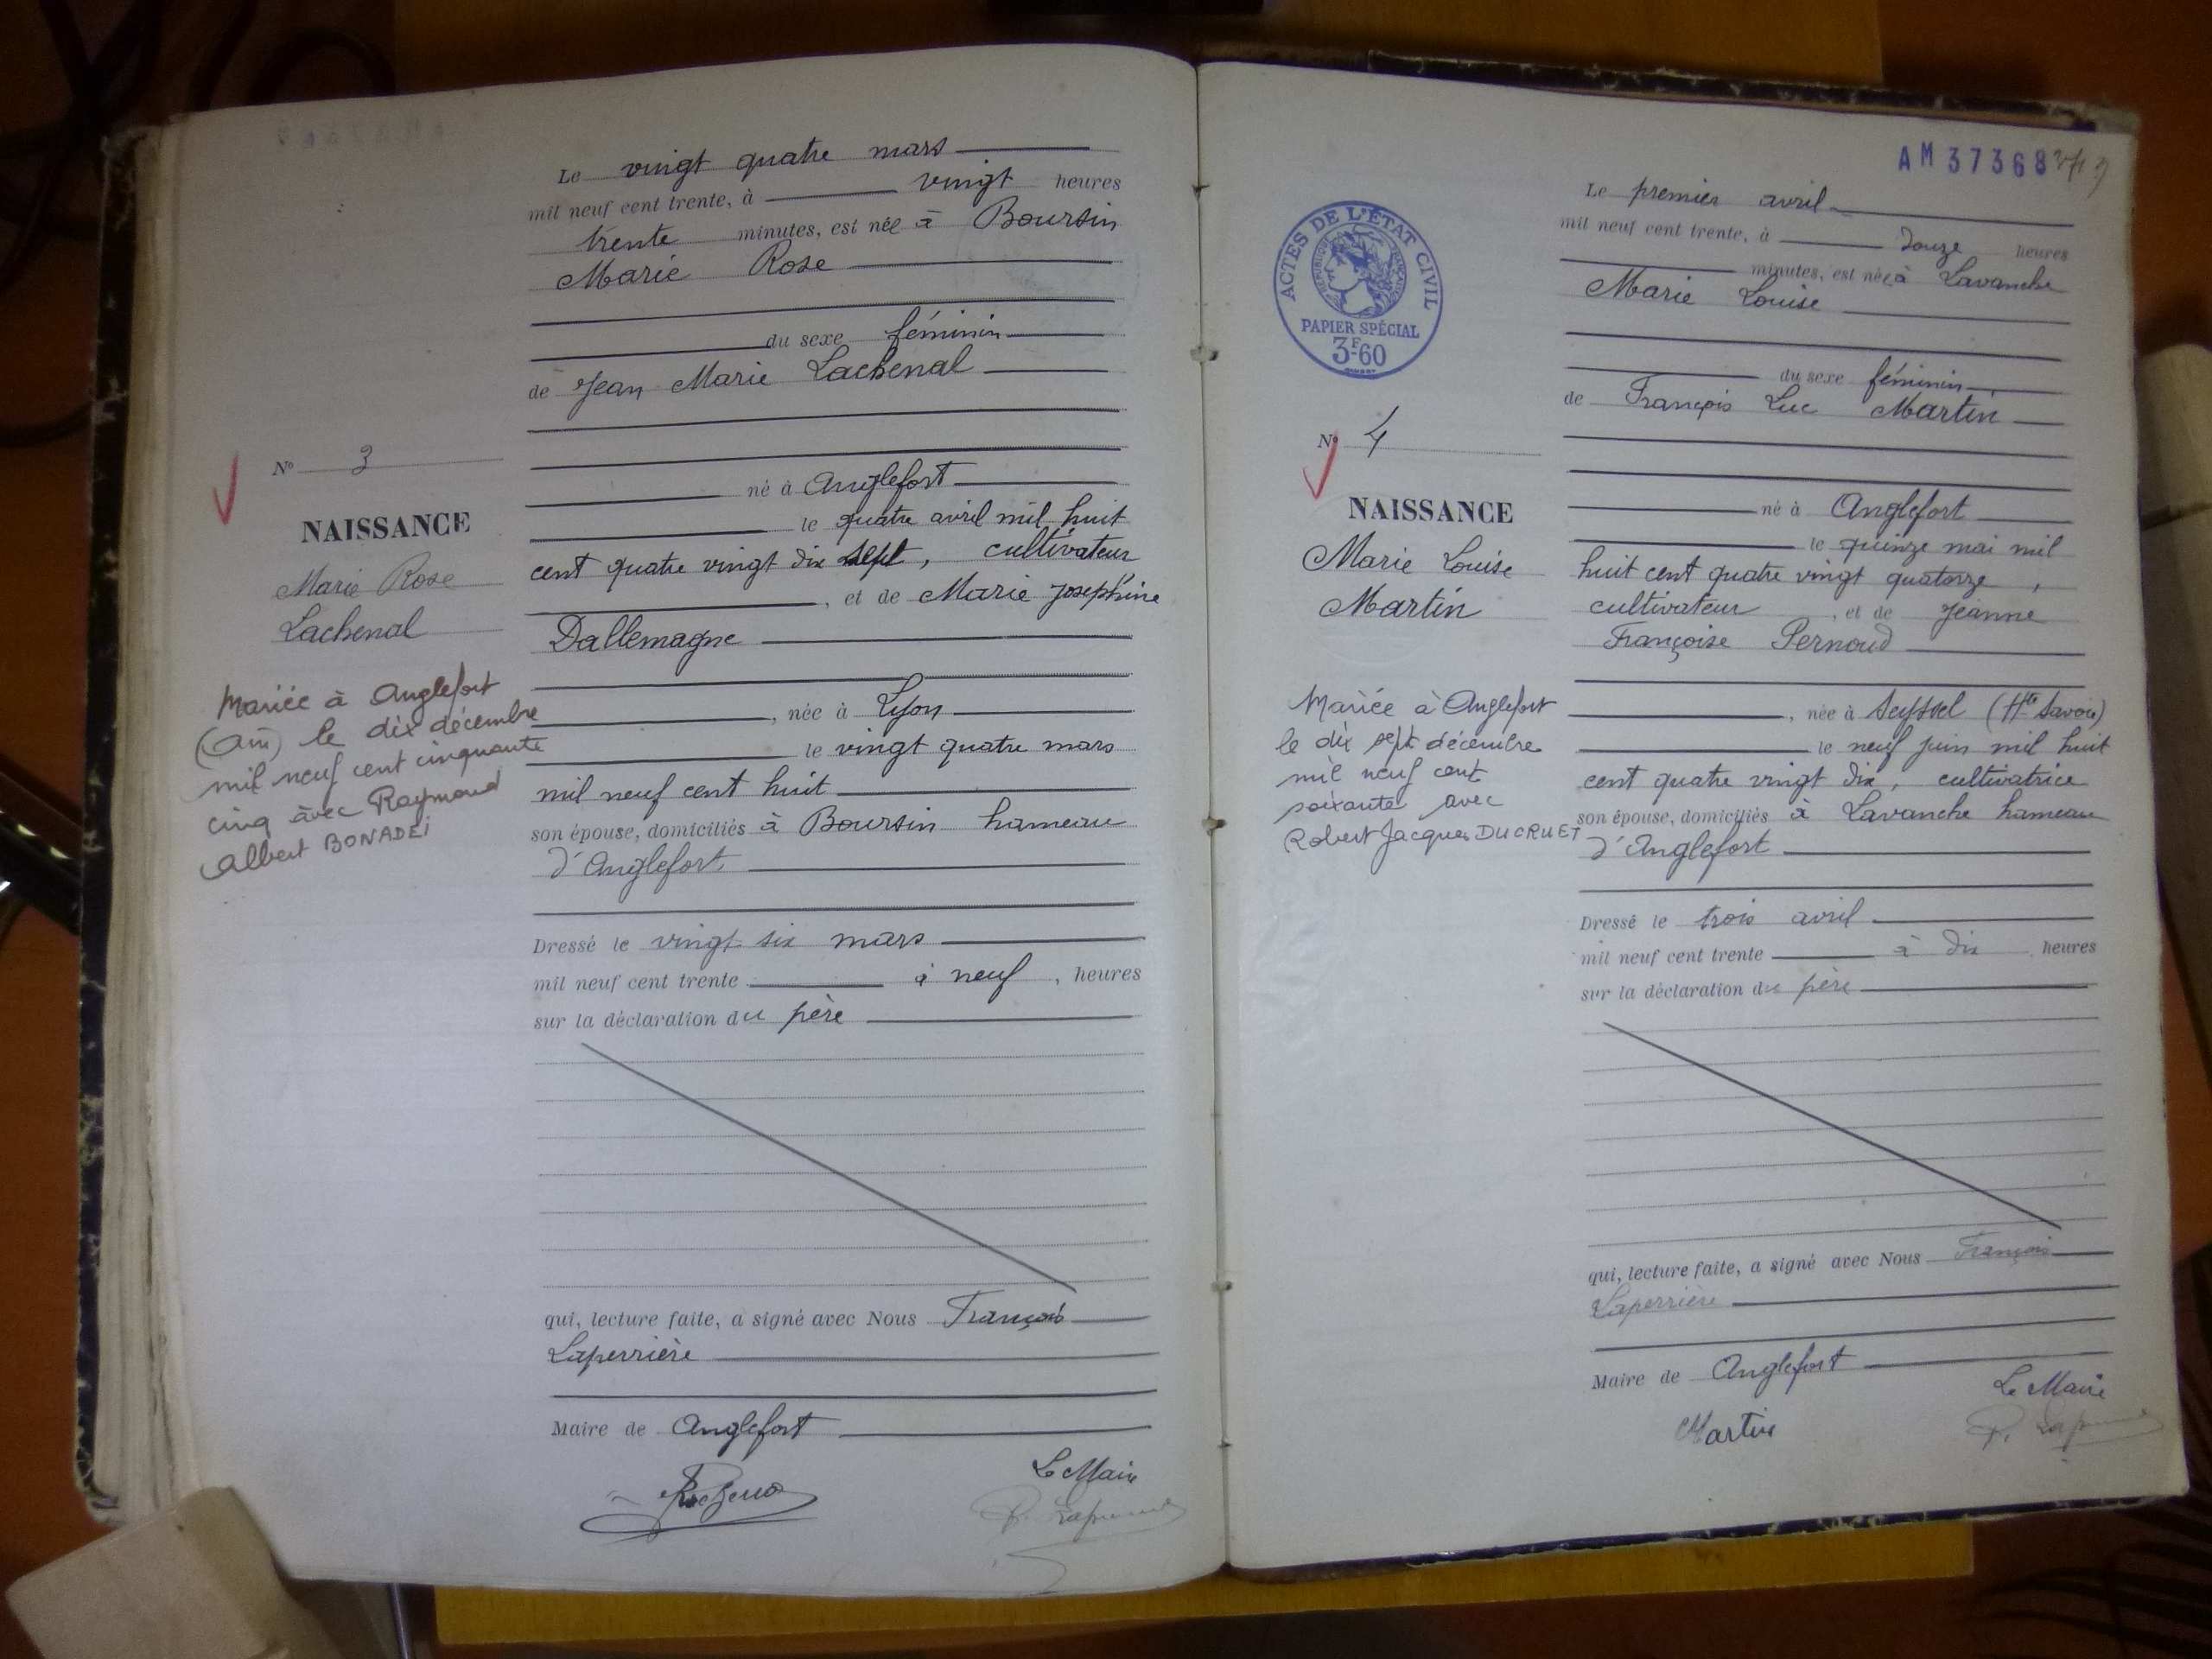 Le vingt quatre mars
mil neuf cent trente, à vingt heures
trente minutes, est née à Boursin
Marie Rose
du sexe féminin
de Jean Marie Lachenal
né à Anglefort
le quatre avril mil huit
cent quatre vingt dix sept, cultivateur
, et de Marie Joséphine
Dallemagne
, née à Lyon
le vingt quatre mars
mil neuf cent huit
son épouse, domiciliés à Boursin hameau
d'Anglefort
Dressé le vingt six mars
mil neuf cent trente à neuf, heures
sur la déclaration du père
qui, lecture faite, a signé avec Nous François
Laperrière
Maire de Anglefort
Le Maire
No 3
NAISSANCE
Marie Rose
Lachenal
Mariée à Anglefort
(Ain) le dix décembre
mil neuf cent cinquante
cinq avec Raymond
Albert BONADEI
AM 37368
Le premier avril
mil neuf cent trente, à douze heures
minutes, est née à Lavanche
Marie Louise
du sexe féminin
de François Luc Martin
né à Anglefort
le quinze mai mil
huit cent quatre vingt quatorze,
cultivateur, et de Jeanne
Françoise Pernoud
, née à Seyssel (Hte Savoie)
le neuf juin mil huit
cent quatre vingt dix, cultivatrice
son épouse, domiciliés à Lavanche hameau
d'Anglefort
Dressé le trois avril
mil neuf cent trente à dix heures
sur la déclaration du père
qui, lecture faite, a signé avec Nous François
Laperrière
Maire de Anglefort
Le Maire
Martin
ACTES DE L'ÉTAT CIVIL
RÉPUBLIQUE FRANÇAISE
PAPIER SPÉCIAL
3F60
No 4
NAISSANCE
Marie Louise
Martin
Mariée à Anglefort
le dix sept décembre
mil neuf cent
soixante avec
Robert Jacques DUCRUET